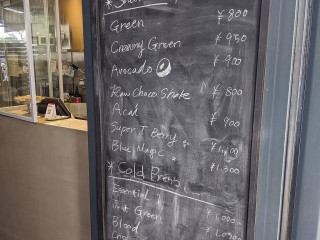 Green ¥800
Creamy Green ¥950
Avocado ¥900
Raw Choco Shake ¥800
Acai ¥900
Super T. Berry
Blue Magic ¥1,300
* Cold Press
Essential 1
Just Green
Blood